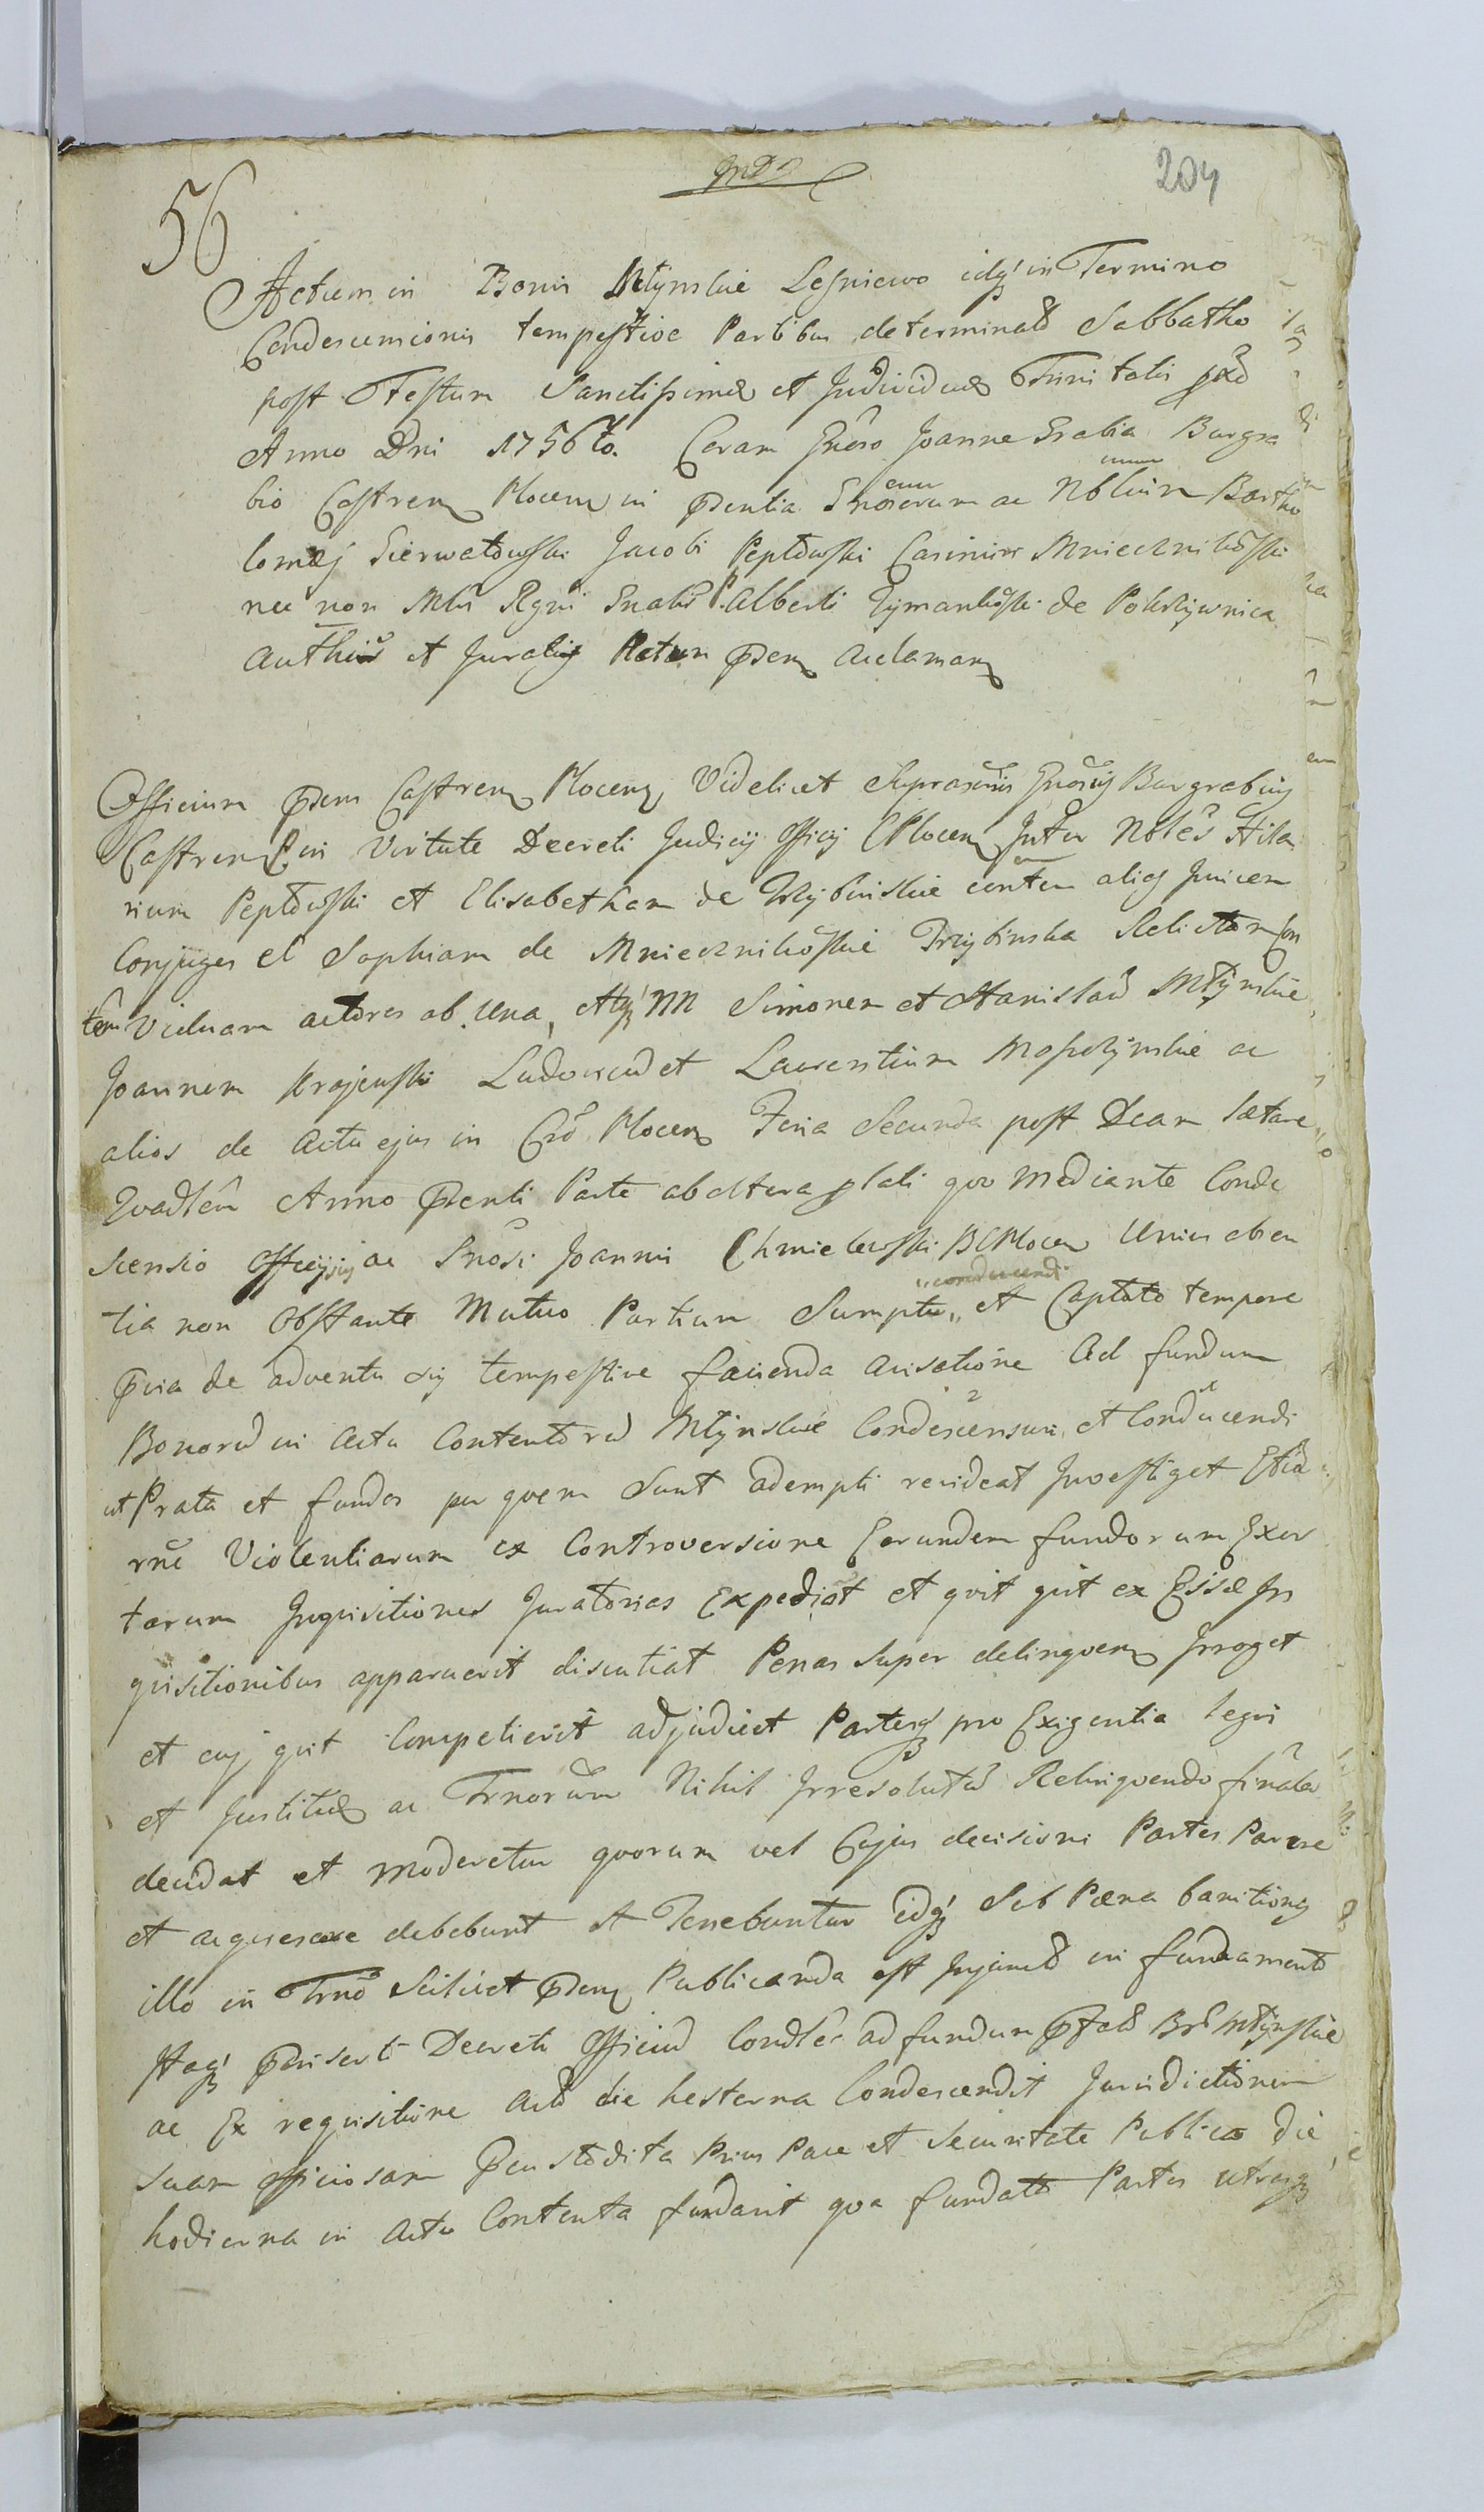 204
56
Actum in Bonis Młynskie Leśniewo idq in Termino
Condescensionis tempestive Partibus determinato Sabbatho
post Festum Sanctissimæ et Individuæ Trinitatis pxo
Anno Dni 1756to. Coram Gnoso Joanne Grabia Burgra
bio Castren Plocen in pntia Gnosorum ac Nblium Bartho
lomæj Sierwatowski Jacobi Peplowski Casimiri Mniecznikoski
nec non Mtri Regni Gnalis P. Alberti Zymankoski de Pokrzywnica
authen et Juratiq Actum pnsen acclaman
Officium pnsens Castren Plocen Videlicet Suprascriptus Gnosus Burgrabius
Castren P in Virtute Decreti Judicij Officij CPlocen Inter Nbles Hila
rium Peplowski et Elisabetham de Trzybinskie alias Invicem
Conjuges et Sophiam de Mniecznikoskie Trzybinska Relictam Con
tem Viduam actores ab una, Atq NN Simonem et Stanislaū Młynskie
Joannem Krajewski Ludovicū et Laurentium Mospszynskie ac
alios de actu ejus in Cro Plocen Feria Secunda post Dcam Lætare
Quadlem Anno pnsenti Parte ab altera plati quo mediante Conde
scensio Officij sui ac Gnosi Joannis Chmielewski BCPlocen Unius absen
tia non Obstante Mutuo Partium Sumptu „conducendi„ et Captato tempore
pvia de adventu sui tempestive facienda avisatione Ad fundum
Bonorū in actu Contentorū Młynskie Condescensuri et Conducendi
ut Prata et fundos per quem Sunt adempti revideat Investiget Etia
rne Violentiarum ex Controversione Eorundem fundorum Exer
tarum Inquisitiones Juratorias Expediat et quit quit ex Eisd In
quisitionibus apparuerit discutiat Penas Super delinquen Irroget
et cuj quit Competierit adjudicet Partesq pro Exigentia Legis
et Justitiæ ac Trnorum Nihil Irresolutū Relinquendo finalr
decidat et moderetur quorum vel Cujus decisioni Partes Parere
et acquiescere debebunt et Tenebuntur idq Sub Pæna banitionis
illo in Trno Scilicet pnsen Publicanda est Injuncto in fundamento
Itaq pinserti Decreti Officiū Condsles ad fundum pfato Brū Młynskie
ac Ex requisitione acto die hesterna Condescendit Jurisdictionem
suam officiosam pcustodita Prius Pace et Securitate Publica Die
hodierna in actu Contenta fundavit qva fundata Partes utraq